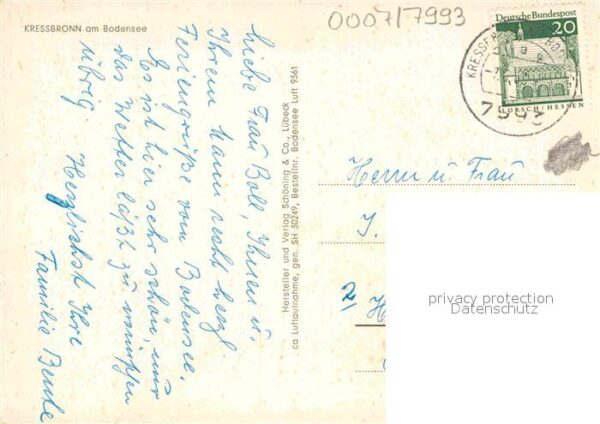 KRESSBRONN am Bodensee
0007/7993
Deutsche Bundespost
20
LORSCH/HESSEN
KRESSBRONN
7993
Liebe Frau Boll, Ihnen u.
Ihrem Mann recht herzl
Feriengrüße vom Bodensee.
Es ist hier sehr schön, nur
das Wetter läßt zu wünschen
übrig
Herzlichst Ihre
Familie
Hersteller und Verlag Schöning & Co., Lübeck
ca Luftaufnahme, gen. SH 30249, Bestellnr. Bodensee Luft 9361
Herrn u. Frau
J.
privacy protection
Datenschutz